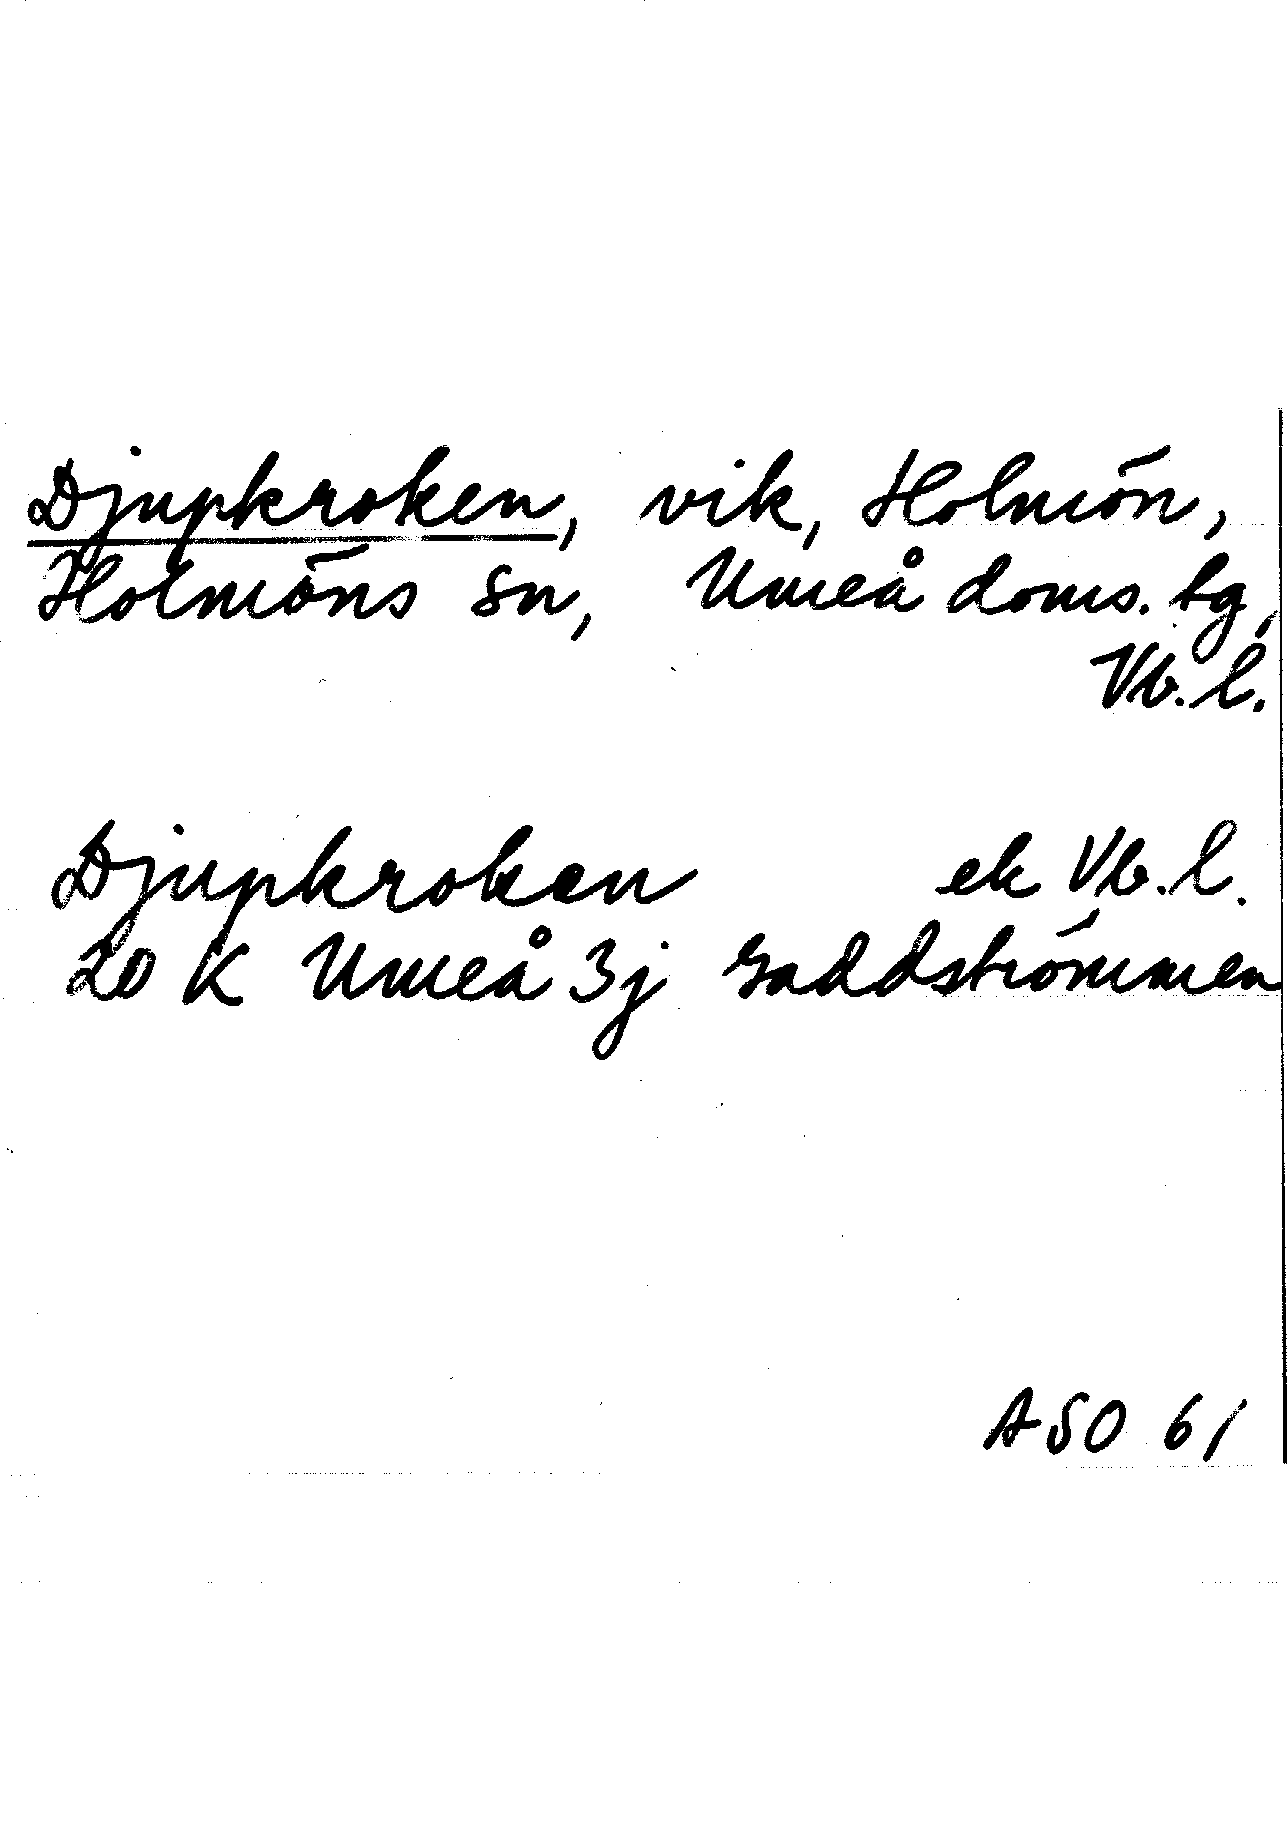 Djupkroken, vik, Holmön,
Holmöns sn, Umeå doms. tg,
Vb. l.
Djupkroken ek Vb. l.
20 K Umeå 3j Gaddströmmen
ASO 61